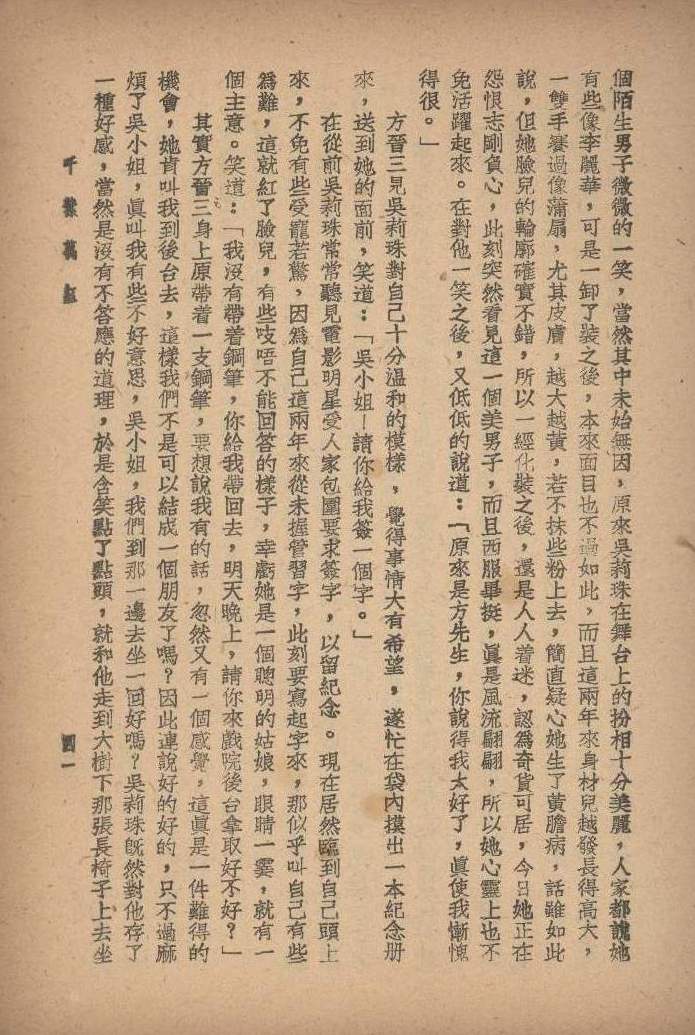 個陌生男子微微的一笑，當然其中未始無因，原來吳莉珠在舞台上的扮相十分美麗，人家都說她
有些像李麗華，可是一卸了裝之後，本來面目也不過如此，而且這兩年來身材兒越發長得高大，
一雙手賽過像蒲扇，尤其皮膚，越大越黃，若不抹些粉上去，簡直疑心她生了黃膽病，話雖如此
說，但她臉兒的輪廓確實不錯，所以一經化裝之後，還是人人着迷，認爲奇貨可居，今日她正在
怨恨志剛負心，此刻突然看見這一個美男子，而且西服畢挺，眞是風流翩翩，所以她心靈上也不
免活躍起來。在對他一笑之後，又低低的說道：「原來是方先生，你說得我太好了，眞使我慚愧
得很。」
方晉三見吳莉珠對自己十分温和的模樣，覺得事情大有希望，遂忙在袋內摸出一本紀念册
來，送到她的面前，笑道：「吳小姐！請你給我簽一個字。」
在從前吳莉珠常常聽見電影明星受人家包圍要求簽字，以留紀念。現在居然臨到自己頭上
來，不免有些受寵若驚，因爲自己這兩年來從未握管習字，此刻要寫起字來，那似乎叫自己有些
爲難，這就紅了臉兒，有些吱唔不能回答的樣子，幸虧她是一個聰明的姑娘，眼睛一霎，就有一
個主意。笑道：「我沒有帶着鋼筆，你給我帶回去，明天晚上，請你來戲院後台拿取好不好？」
其實方晉三身上原帶着一支鋼筆，要想說我有的話，忽然又有一個感覺，這眞是一件難得的
機會，她肯叫我到後台去，這樣我們不是可以結成一個朋友了嗎？因此連說好的好的，只不過麻
煩了吳小姐，眞叫我有些不好意思，吳小姐，我們到那一邊去坐一回好嗎？吳莉珠旣然對他存了
一種好感，當然是沒有不答應的道理，於是含笑點了點頭，就和他走到大樹下那張長椅子上去坐
千紫萬紅
四一